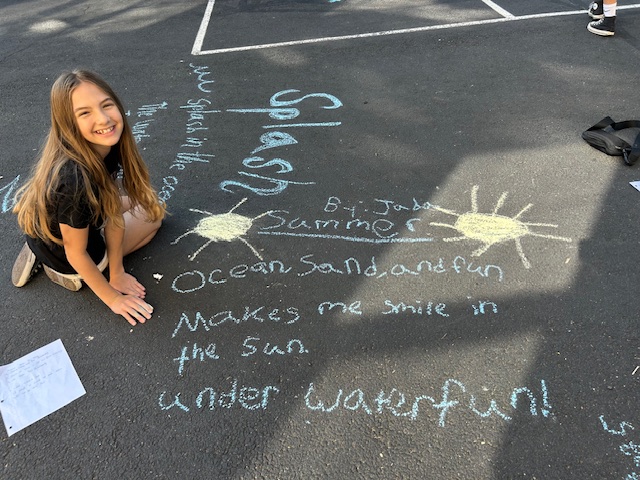 Splash
Splash in the ocean
By: Jada
Summer
Ocean, Sand, and fun
Makes me smile in
the sun.
under waterfun!